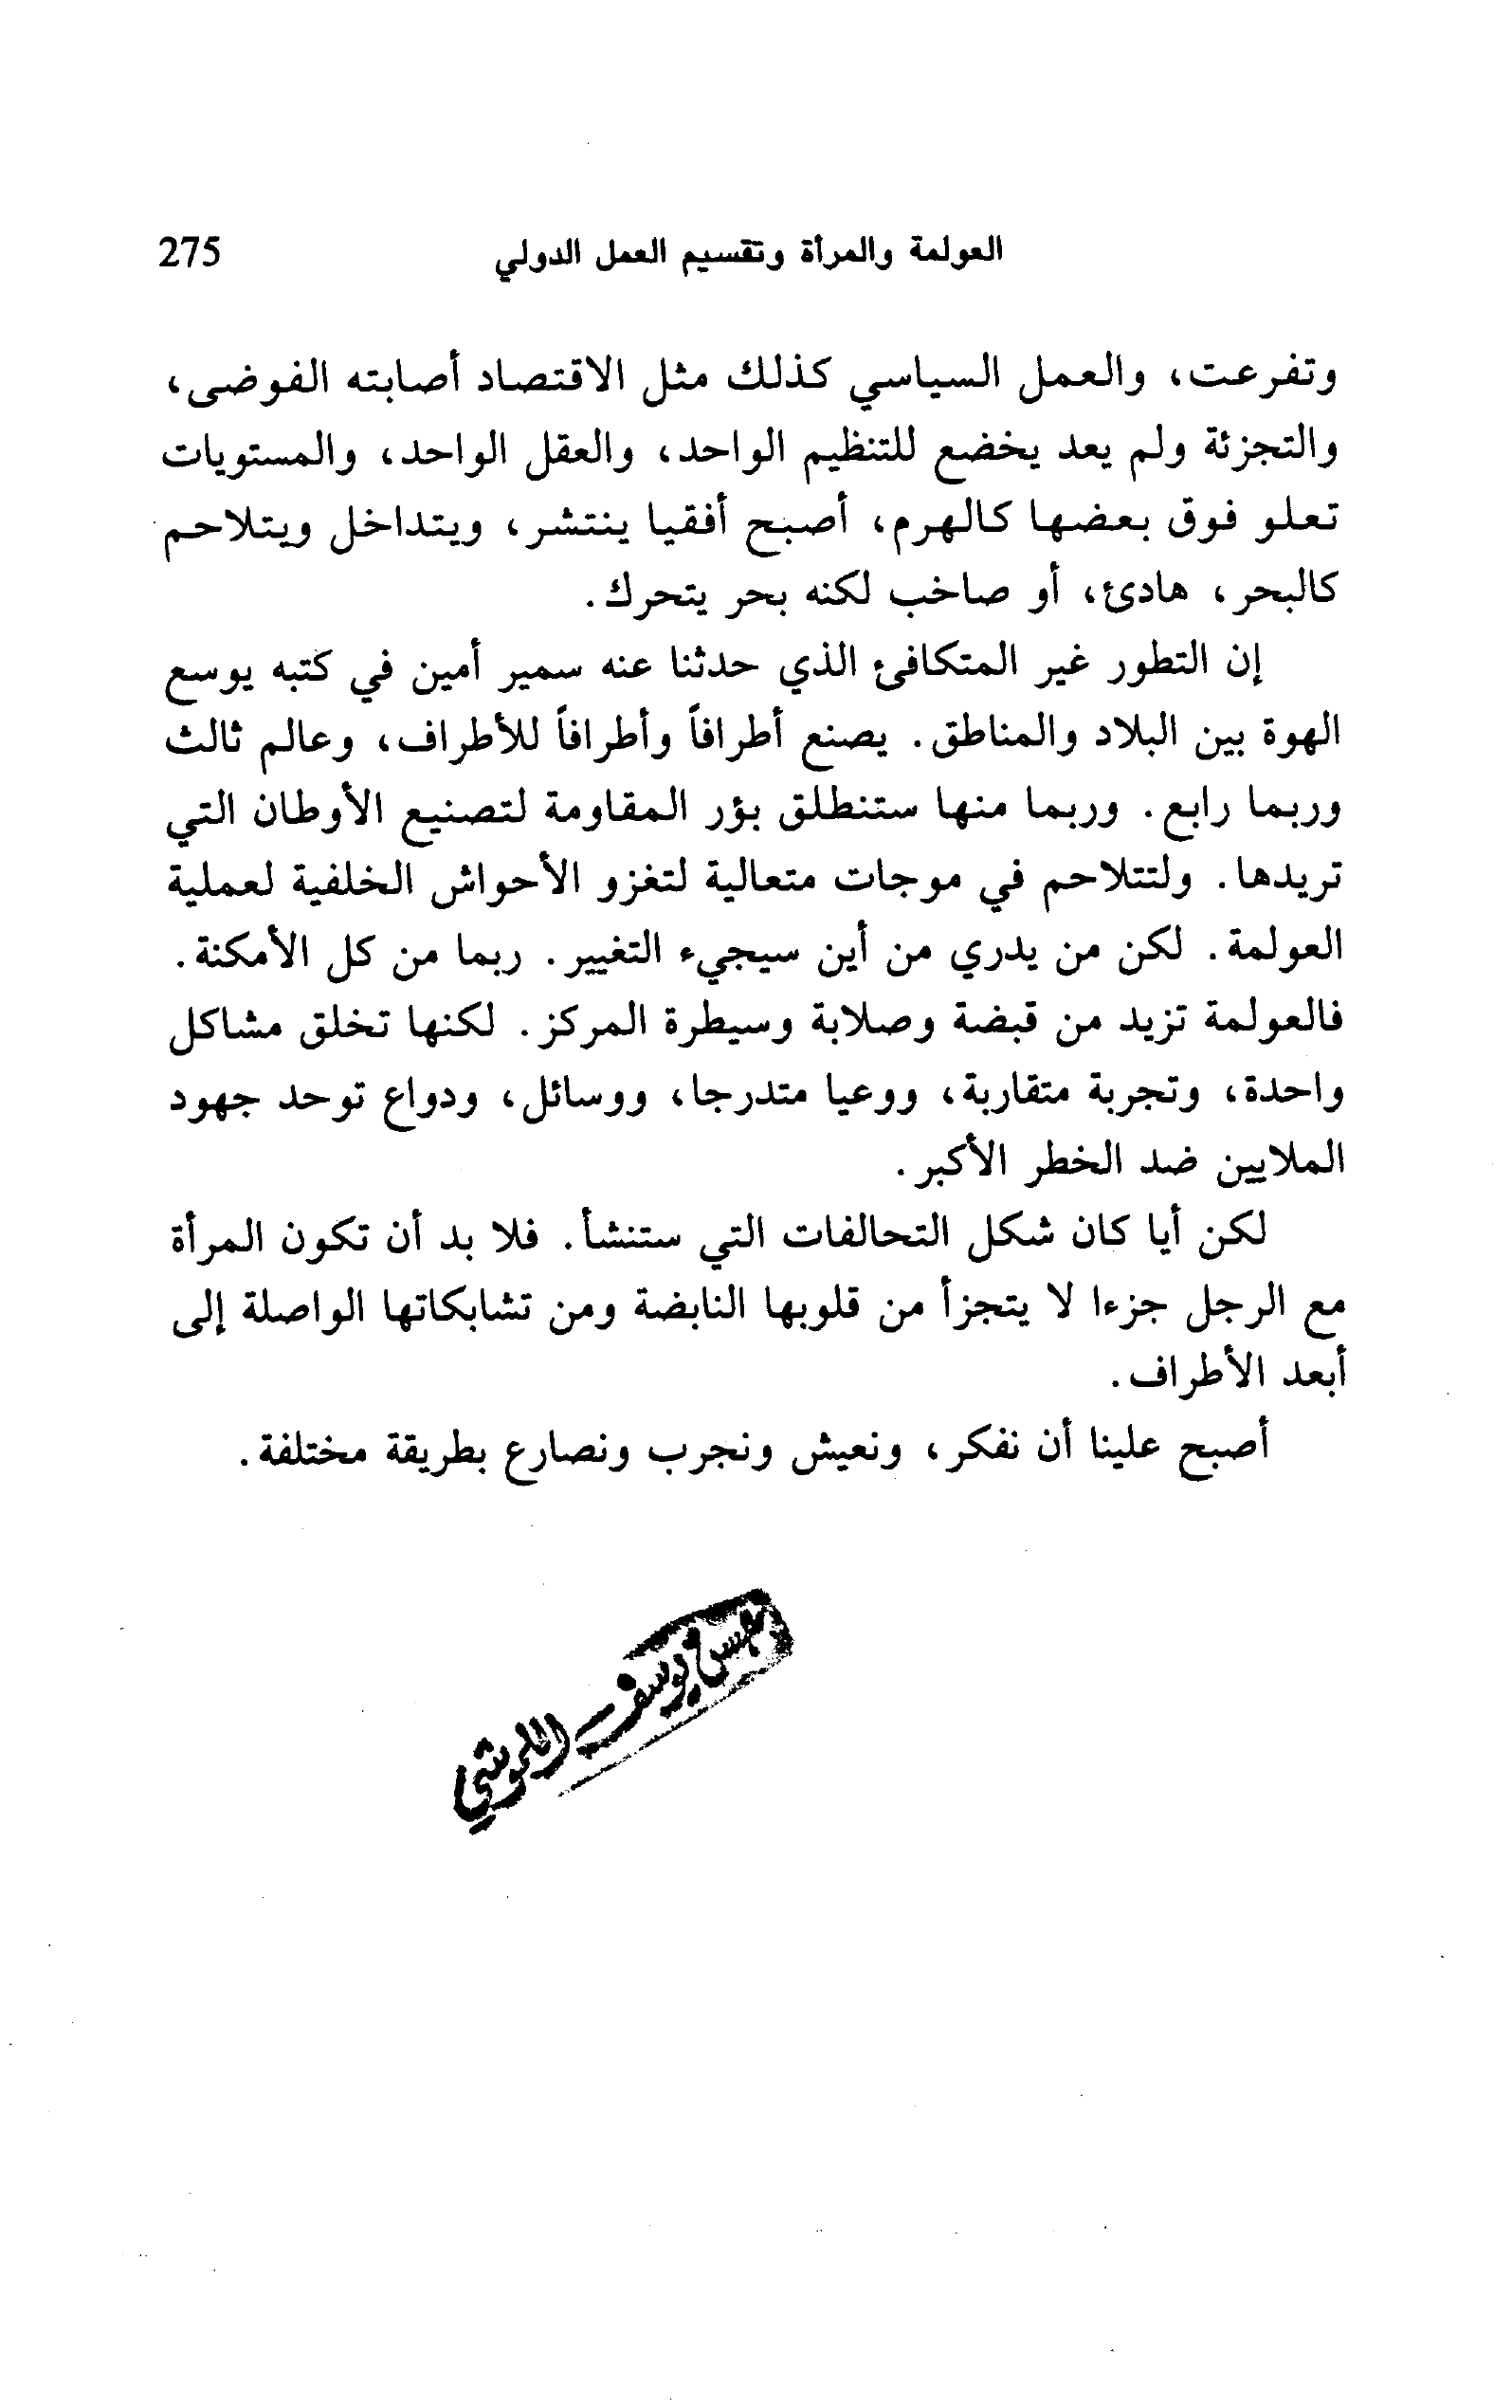 العولمة والمرأة وتقسيم العمل الدولي 275
وتفرعت، والعمل السياسي كذلك مثل الاقتصاد أصابته الفوضى،
والتجزئة ولم يعد يخضع للتنظيم الواحد، والعقل الواحد، والمستويات
تعلو فوق بعضها كالهرم، أصبح أفقيا ينتشر، ويتداخل ويتلاحم
كالبحر، هادئ، أو صاخب لكنه بحر يتحرك.
إن التطور غير المتكافئ الذي حدثنا عنه سمير أمين في كتبه يوسع
الهوة بين البلاد والمناطق. يصنع أطرافاً وأطرافاً للأطراف، وعالم ثالث
وربما رابع. وربما منها ستنطلق بؤر المقاومة لتصنيع الأوطان التي
تريدها. ولتتلاحم في موجات متعالية لتغزو الأحواش الخلفية لعملية
العولمة. لكن من يدري من أين سيجيء التغيير. ربما من كل الأمكنة.
فالعولمة تزيد من قبضة وصلابة وسيطرة المركز. لكنها تخلق مشاكل
واحدة، وتجربة متقاربة، ووعيا متدرجا، ووسائل، ودواع توحد جهود
الملايين ضد الخطر الأكبر.
لكن أيا كان شكل التحالفات التي ستنشأ. فلا بد أن تكون المرأة
مع الرجل جزءا لا يتجزأ من قلوبها النابضة ومن تشابكاتها الواصلة إلى
أبعد الأطراف.
أصبح علينا أن نفكر، ونعيش ونجرب ونصارع بطريقة مختلفة.
يوسف